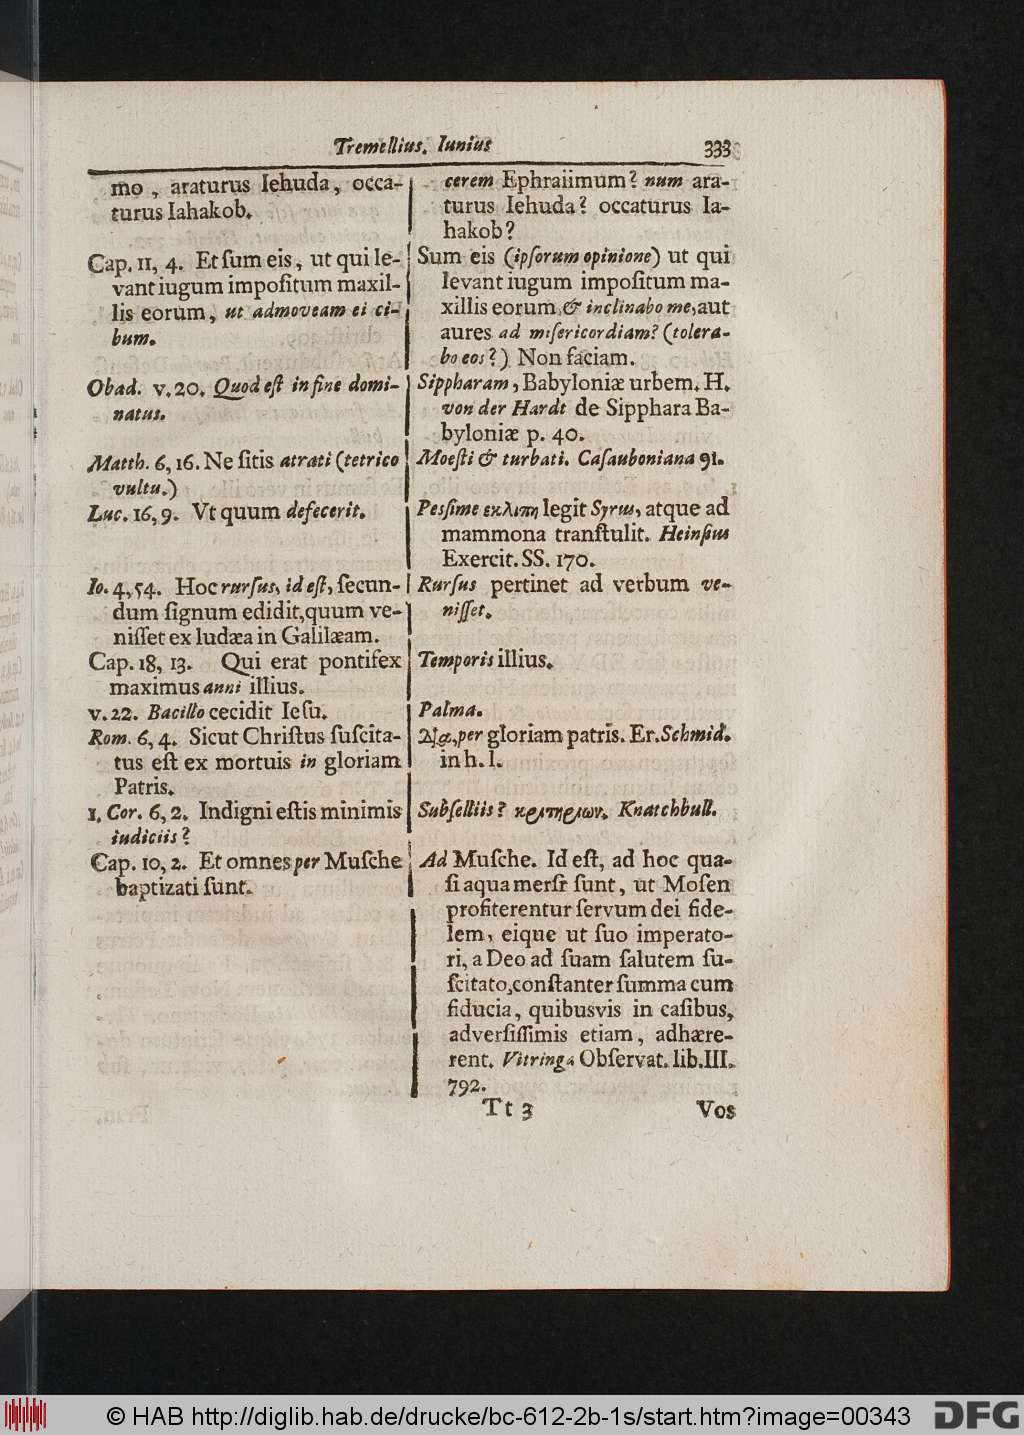 Tremellius. Iunius 333
mo, araturus Iehuda, occa-
turus Iahakob.
Cap. 11, 4. Et ſum eis, ut qui le-
vant iugum impoſitum maxil-
lis eorum, ut admoveam ei ci-
bum.
Obad. v. 20. Quod eſt in fine domi-
natus.
Matth. 6, 16. Ne ſitis atrati (tetrico
vultu.)
Luc. 16, 9. Vt quum defecerit.
Io. 4, 54. Hoc rurſus, id eſt, ſecun-
dum ſignum edidit, quum ve-
niſſet ex Iudæa in Galilæam.
Cap. 18, 13. Qui erat pontifex
maximus anni illius.
v. 22. Bacillo cecidit Ieſu.
Rom. 6, 4. Sicut Chriſtus ſuſcita-
tus eſt ex mortuis in gloriam
Patris.
1. Cor. 6, 2. Indigni eſtis minimis
iudiciis?
Cap. 10, 2. Et omnes per Muſche
baptizati ſunt.
cerem Ephraiimum? num ara-
turus Iehuda? occaturus Ia-
hakob?
Sum eis (ipſorum opinione) ut qui
levant iugum impoſitum ma-
xillis eorum & inclinabo me, aut
aures ad miſericordiam? (tolera-
bo eos?) Non faciam.
Sippharam, Babyloniæ urbem. H.
von der Hardt de Sipphara Ba-
byloniæ p. 40.
Moeſti & turbati. Caſauboniana 91.
Peſſime εκλιπη legit Syrus, atque ad
mammona tranſtulit. Heinſius
Exercit. SS. 170.
Rurſus pertinet ad verbum ve-
niſſet.
Temporis illius.
Palma.
Δια, per gloriam patris. Er. Schmid.
in h. l.
Subſelliis? κριτηριων. Knatchbull.
Ad Muſche. Id eſt, ad hoc qua-
ſi aqua merſi ſunt, ut Moſen
profiterentur ſervum dei fide-
lem, eique ut ſuo imperato-
ri, a Deo ad ſuam ſalutem ſu-
ſcitato, conſtanter ſumma cum
fiducia, quibusvis in caſibus,
adverſiſſimis etiam, adhære-
rent. Vitringa Obſervat. lib. III.
792.
Tt 3 Vos
© HAB http://diglib.hab.de/drucke/bc-612-2b-1s/start.htm?image=00343 DFG